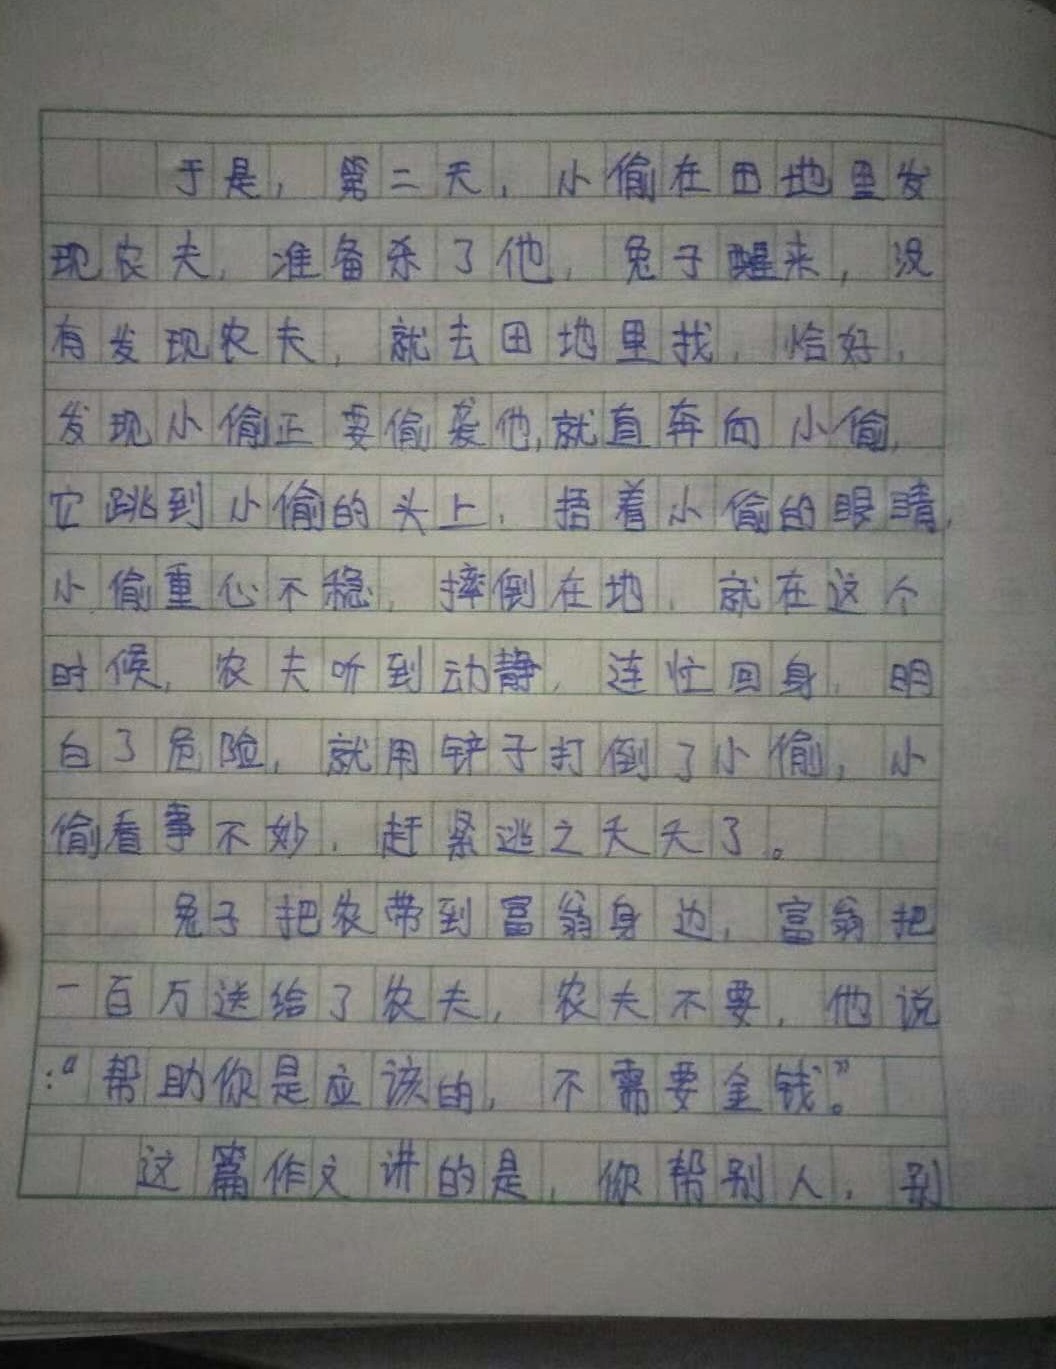 于是，第二天，小偷在田地里发
现农夫，准备杀了他，兔子醒来，没
有发现农夫，就去田地里找，恰好，
发现小偷正要偷袭他，就直奔向小偷，
它跳到小偷的头上，捂着小偷的眼睛，
小偷重心不稳，摔倒在地，就在这个
时候，农夫听到动静，连忙回身，明
白了危险，就用铲子打倒了小偷，小
偷看事不妙，赶紧逃之夭夭了。
兔子把农带到富翁身边，富翁把
一百万送给了农夫，农夫不要，他说
：“帮助你是应该的，不需要金钱。”
这篇作文讲的是，你帮别人，别